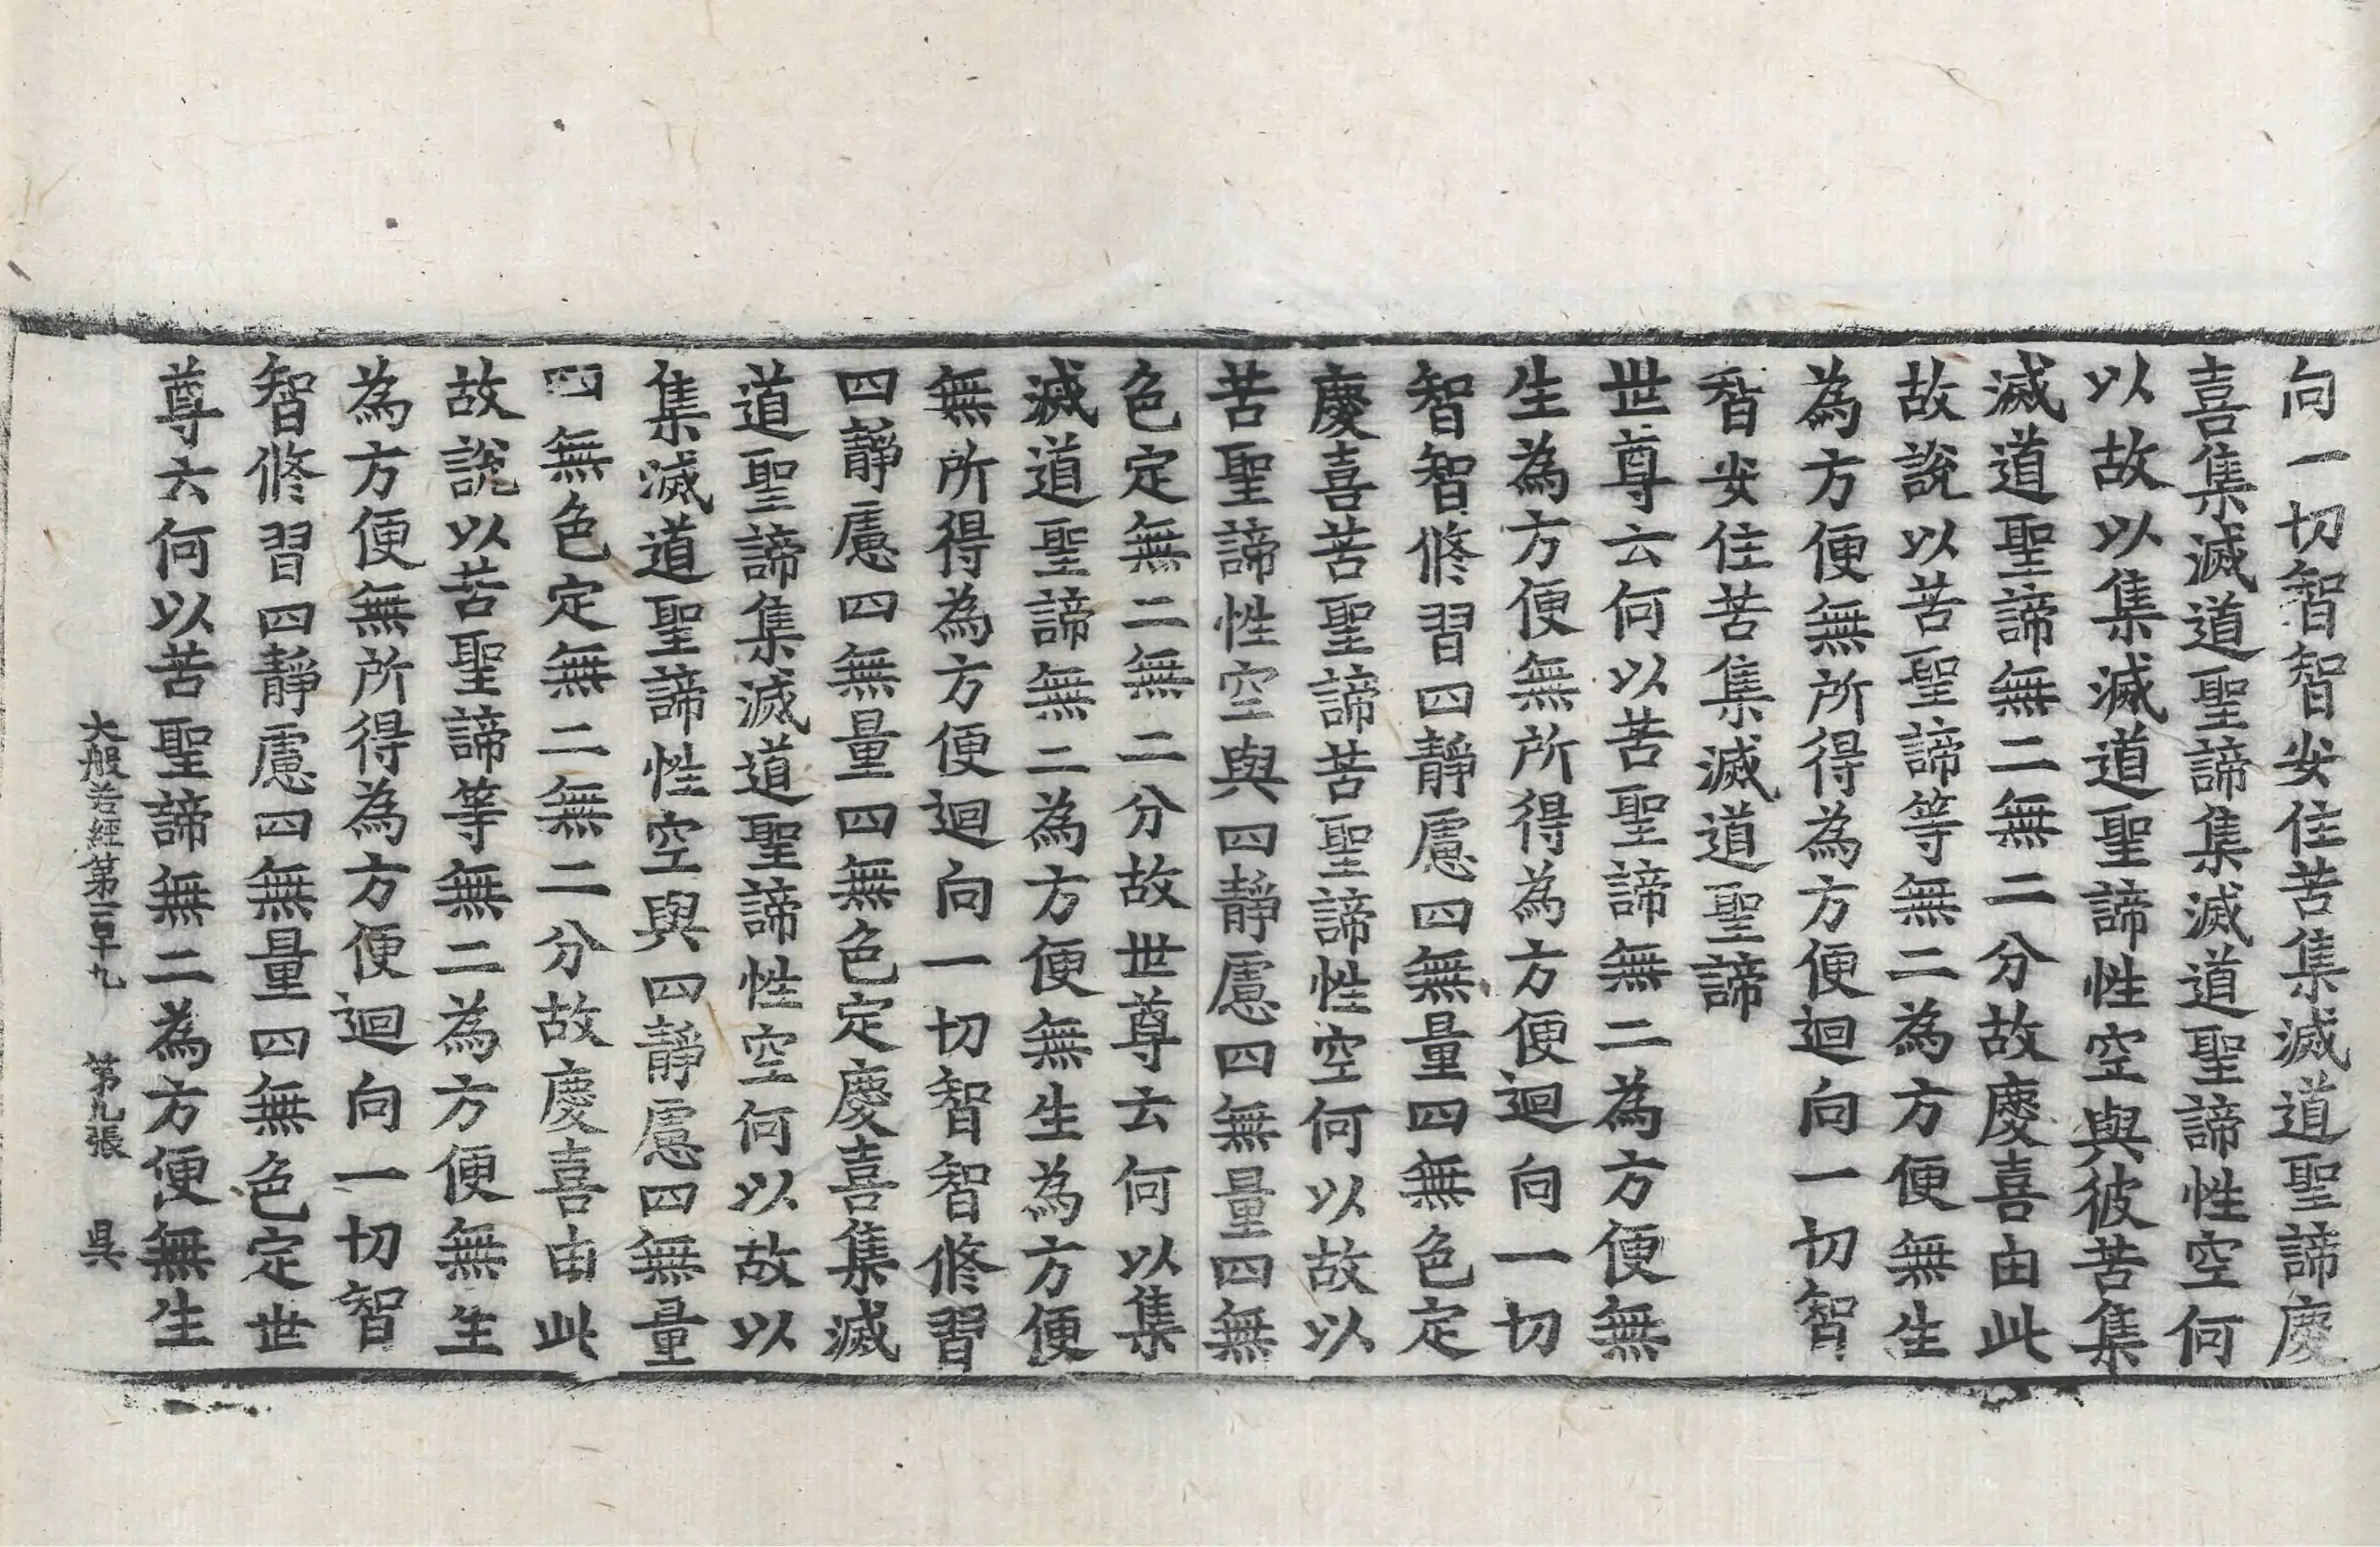 向一切智智安住苦集滅道聖諦慶
喜集滅道聖諦集滅道聖諦性空何
以故以集滅道聖諦性空與彼苦集
滅道聖諦無二無二分故慶喜由此
故說以苦聖諦等無二為方便無生
為方便無所得為方便迴向一切智
智安住苦集滅道聖諦
世尊云何以苦聖諦無二為方便無
生為方便無所得為方便迴向一切
智智修習四靜慮四無量四無色定
慶喜苦聖諦苦聖諦性空何以故以
苦聖諦性空與四靜慮四無量四無
色定無二無二分故世尊云何以集
滅道聖諦無二為方便無生為方便
無所得為方便迴向一切智智修習
四靜慮四無量四無色定慶喜集滅
道聖諦集滅道聖諦性空何以故以
集滅道聖諦性空與四靜慮四無量
四無色定無二無二分故慶喜由此
故說以苦聖諦等無二為方便無生
為方便無所得為方便迴向一切智
智修習四靜慮四無量四無色定世
尊云何以苦聖諦無二為方便無生
大般若經第一百十九 第九張 吳